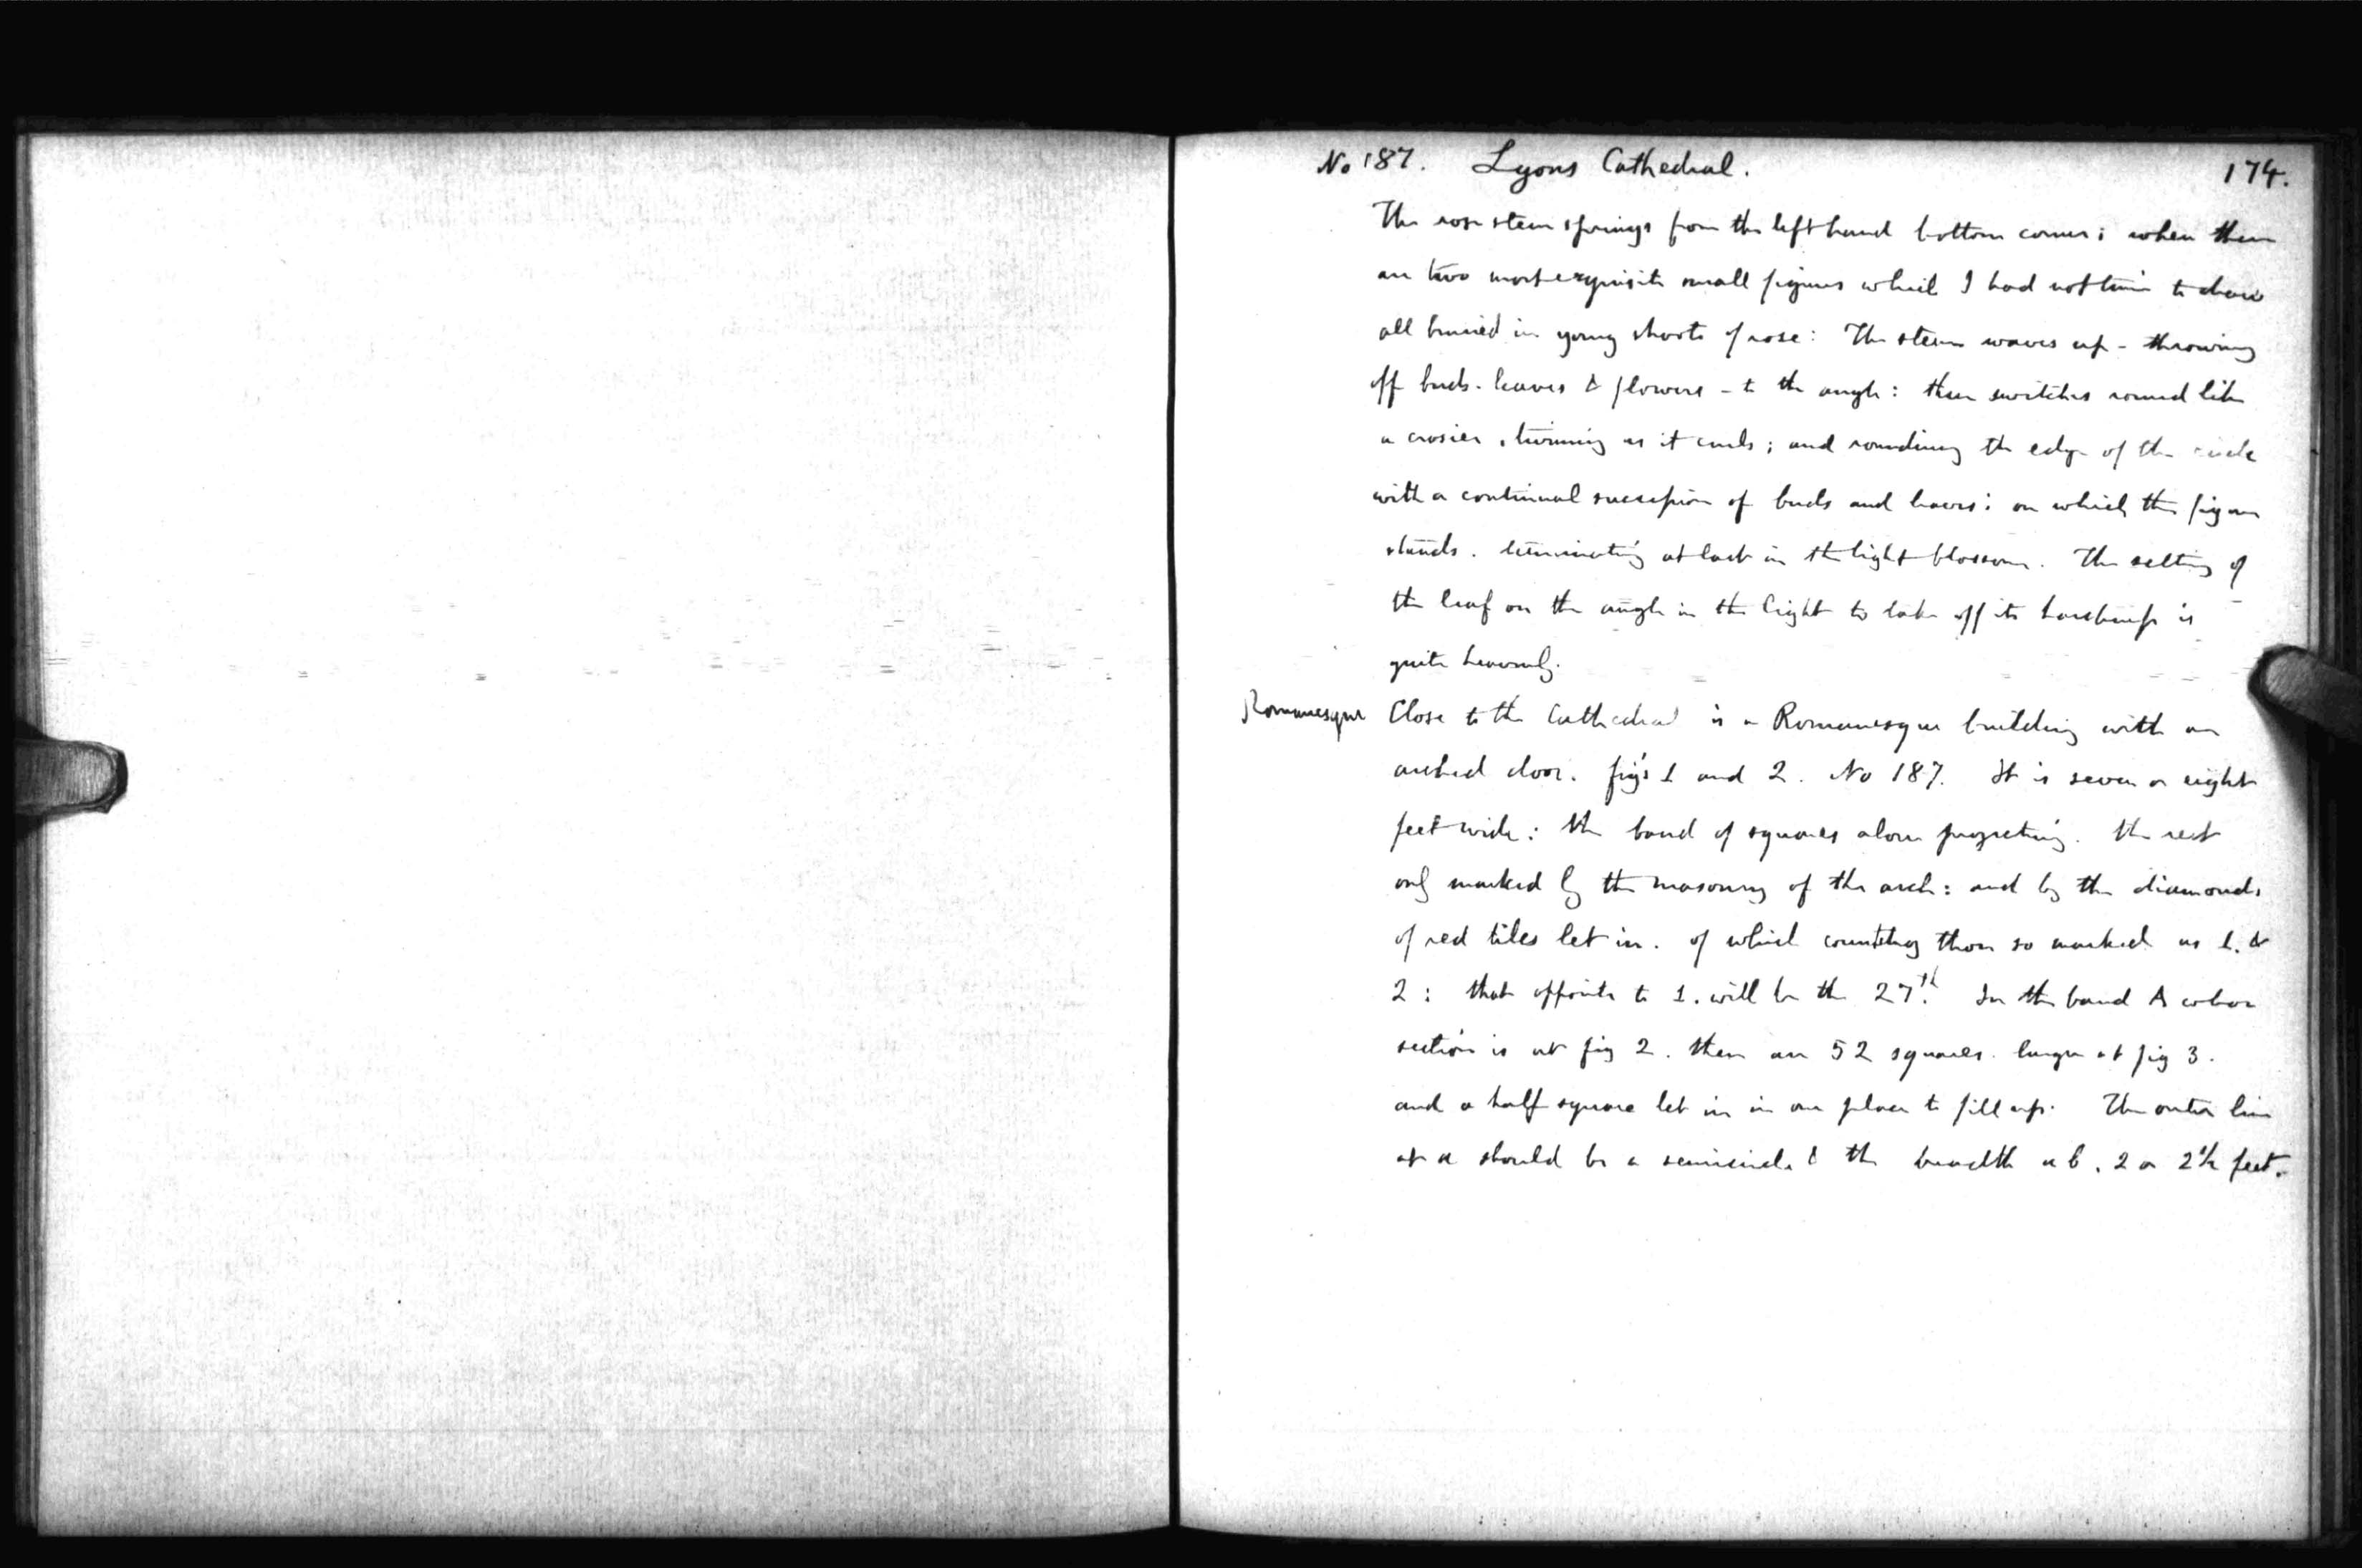 No 187. Lyons Cathedral. 174.
The rose stem springs from the left hand bottom corner; where there
are two most exquisite small figures which I had not time to draw
all buried in young shoots of rose: The stem waves up - throwing
off buds. leaves & flowers - to the angle: then switches round like
a crosier, twining as it curls; and rounding the edge of the circle
with a continual succession of buds and leaves: on which the figure
stands. terminating at last in the light blossom. The setting of
the leaf on the angle in the light to take off its harshness is
quite heavenly.
Romanesque Close to the Cathedral is a Romanesque building with an
arched door. figs 1 and 2. No 187. It is seven or eight
feet wide: the band of squares alone projecting. the rest
only marked by the masonry of the arch: and by the diamonds
of red tiles let in. of which counting those so marked as 1. &
2: that opposite to 1. will be the 27th. In the band A whose
section is at fig 2. there are 52 squares. larger at fig 3.
and a half square let in in one place to fill up. The outer line
at a should be a semicircle & the breadth a b. 2 or 2½ feet.